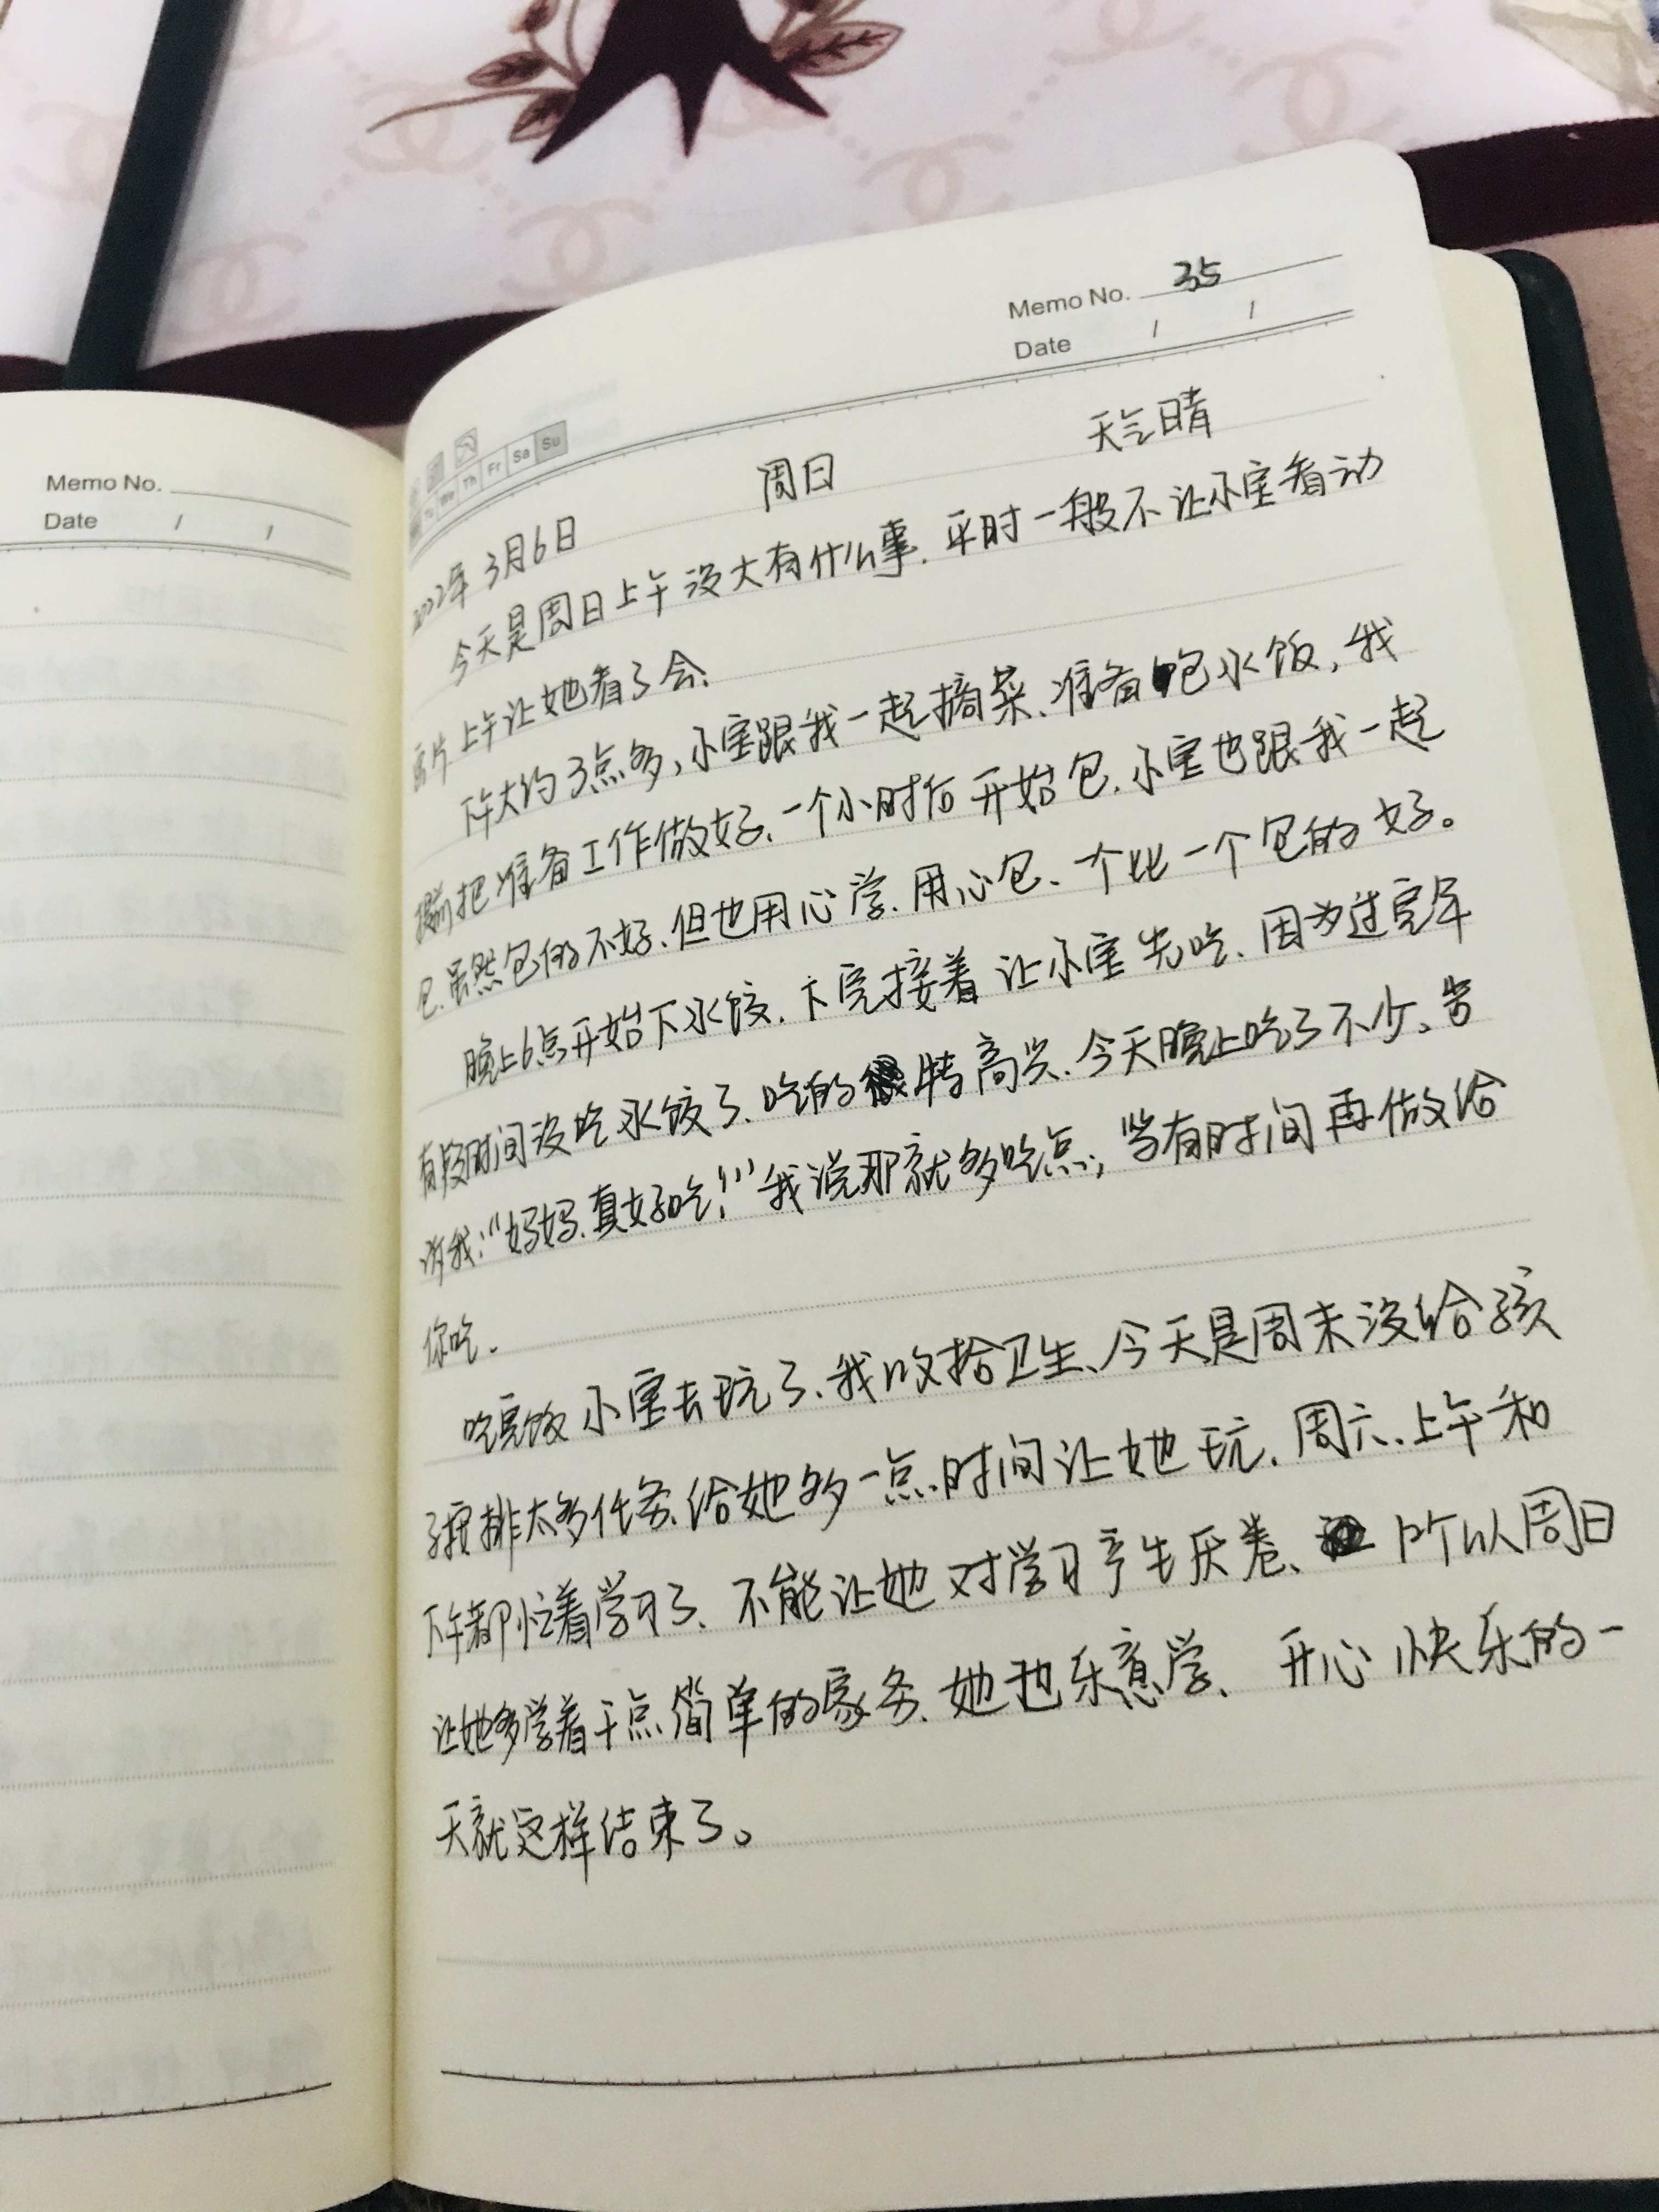 Memo No. 35
Date / /
Memo No.
Date / /
Tu We Th Fr Sa Su
2022年3月6日 周日 天气晴
今天是周日上午没大有什么事.平时一般不让小宝看动
画片上午让她看了会.
下午大约3点多,小宝跟我一起摘菜.准备包水饭,我
提前把准备工作做好.一个小时后开始包.小宝也跟我一起
包.虽然包的不好.但也用心学.用心包、一个比一个包的好。
晚上6点开始下水饺.下完接着让小宝先吃.因为过完年
有段时间没吃水饺了.吃的特高兴.今天晚上吃了不少、告
诉我:“妈妈.真好吃!”我说那就多吃点;当有时间再做给
你吃.
吃完饭小宝去玩了.我收拾卫生、今天是周末没给孩
子安排太多任务.给她多一点时间让她玩.周六、上午和
下午都忙着学习了、不能让她对学习产生厌卷、所以周日
让她多学着干点简单的家务.她也乐意学、开心快乐的一
天就这样结束了。